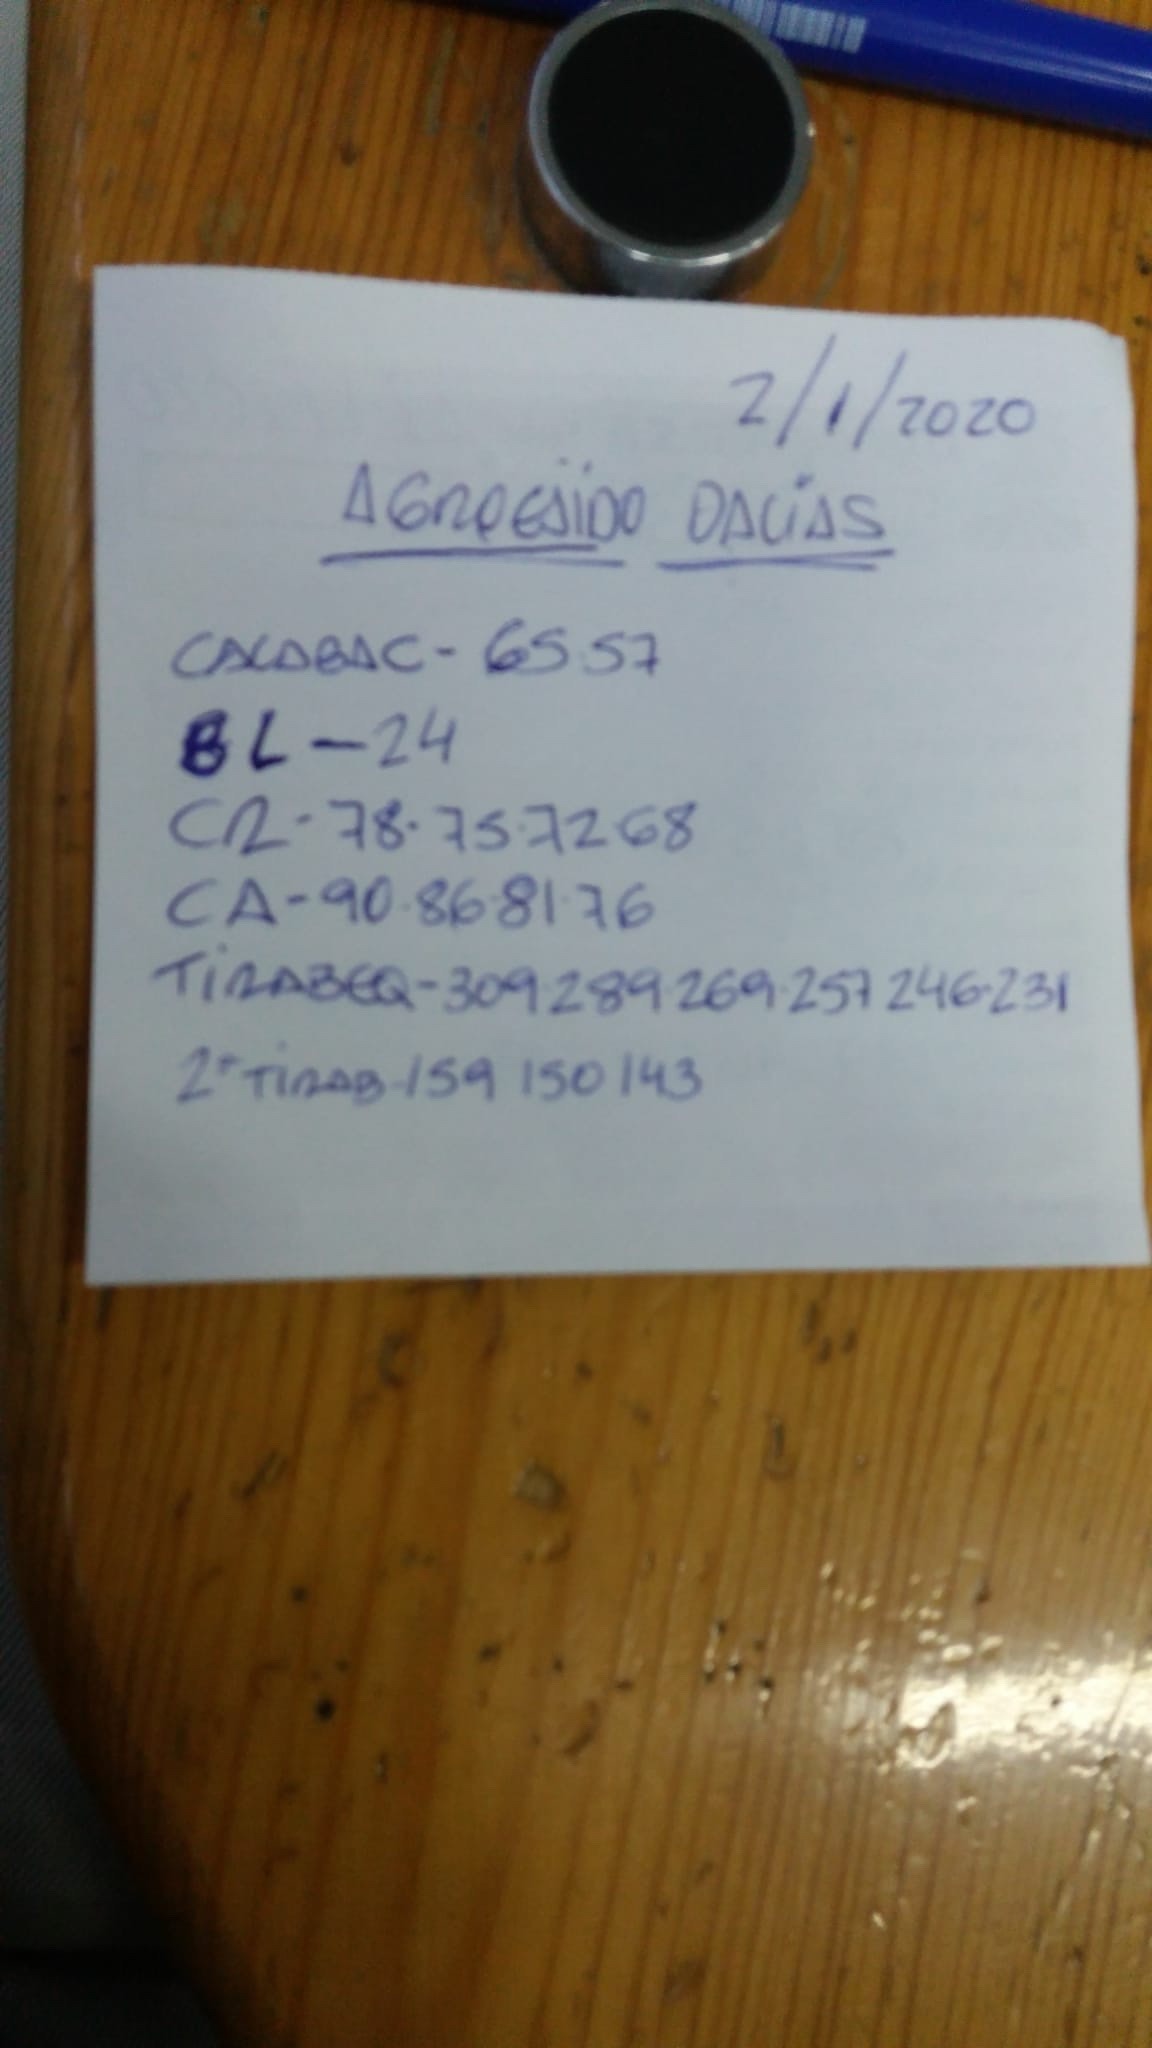 2/1/2020
AGROEJIDO DALIAS
CALABAC - 65.57
BL - 24
CR - 78.75.72 68
CA - 90.86.81.76
TIRABEQ - 309.289 269.257 246.231
2ª TIRAB - 159 150 143